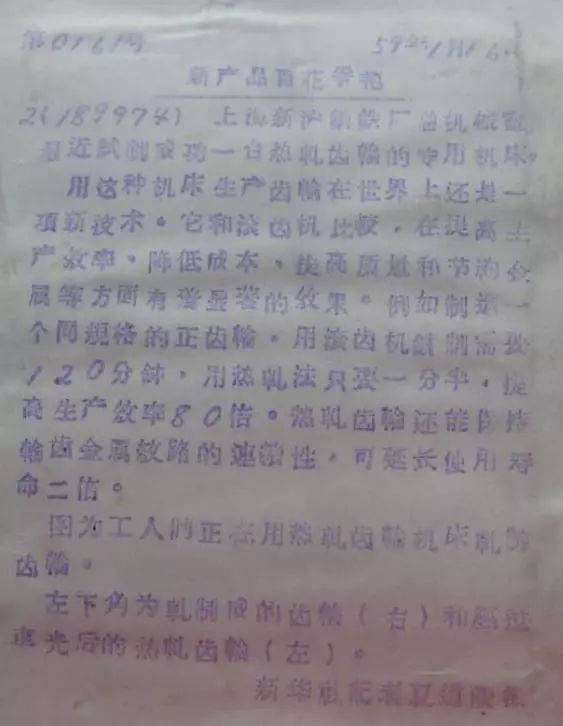 第0161号 59年1月16
新产品百花争艳
2(189974) 上海新沪鋼鉄厂
最近試制成功一台热軋齿輪的专用机床。
用这种机床生产齿輪在世界上还是一
項新技术。它和滚齿机比較，在提高生
产效率、降低成本、提高质量和节約金
属等方面有着显著的效果。例如制造一
个同規格的正齿輪。用滚齿机 制需要
120分鈡，用热軋法只要一分半，提
高生产效率80倍。热軋齿輪还能保持
輪齿金属紋路的連續性，可延长使用寿
命二倍。
图为工人們正在用热軋齿輪机床軋制
齿輪。
左下角为軋制成的齿輪（右）和經过
車光后的热軋齿輪（左）。
新华社記者夏道陵